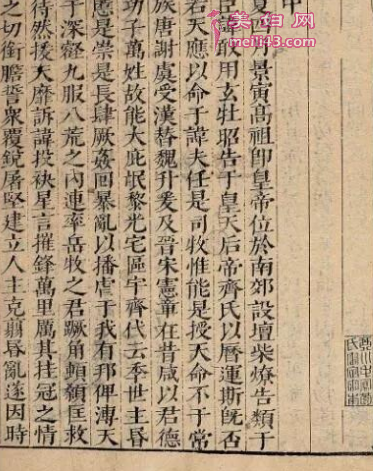 中
夏四月景寅高祖卽皇帝位於南郊設壇柴燎告類于
臣諱敢用玄牡昭告于皇天后帝齊氏以曆運斯旣否
若天應以命于諱夫任是司牧惟能是授天命不于常
族唐謝虞受漢替魏升爰及晉宋憲章在昔咸以君德
功子萬姓故能大庇氓黎光宅區宇齊代云季世主昏
慝是崇是長肆厥姦回暴亂以播虐于我有邦俾溥天
于深壑九服八荒之內連率岳牧之君蹶角頓顙匡救
待然援天靡訴諱投袂星言摧鋒萬里厲其挂冠之情
之切銜膽誓衆覆銳屠堅建立人主克翦昬亂遂因時
美伯网